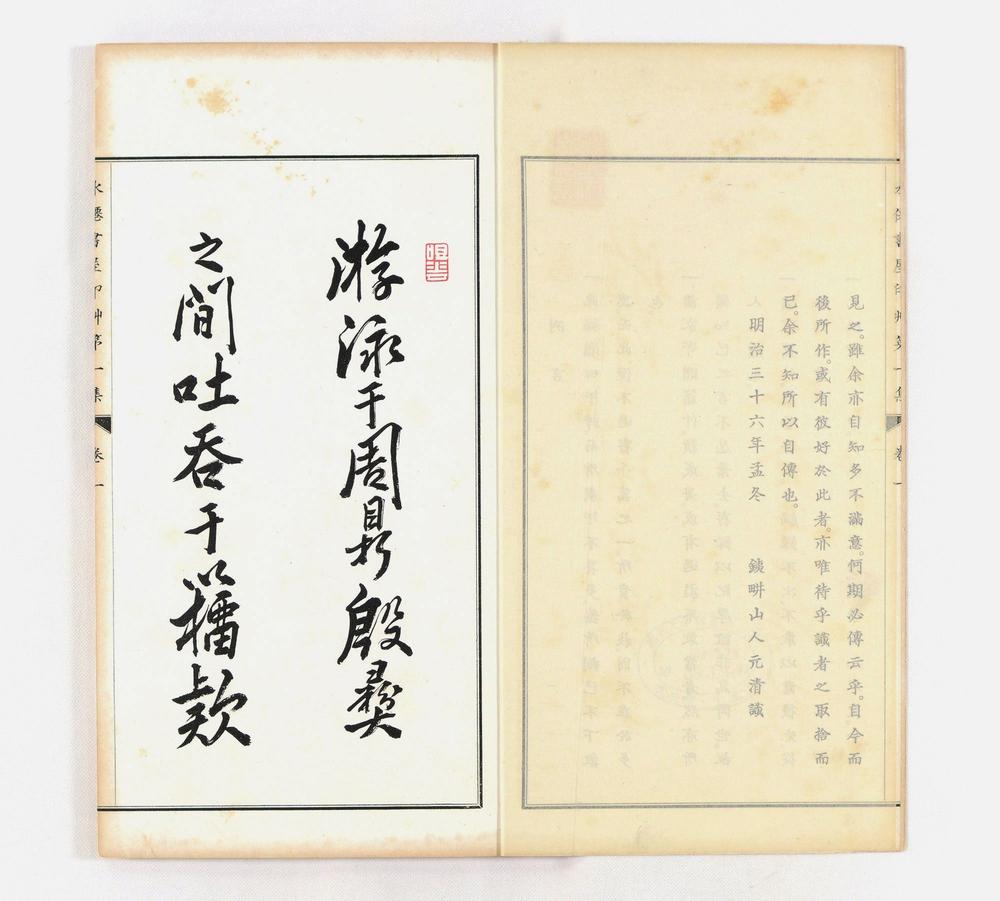 見之。雖余亦自知多不滿意。何期必傳云乎。自今而
後所作。或有彼好於此者。亦唯待乎識者之取捨而
已。余不知所以自傳也。
明治三十六年孟冬　　銕畊山人元清識
游泳于周鼎殷彝
之間吐吞于籀款
水僊書屋印艸第一集　卷一